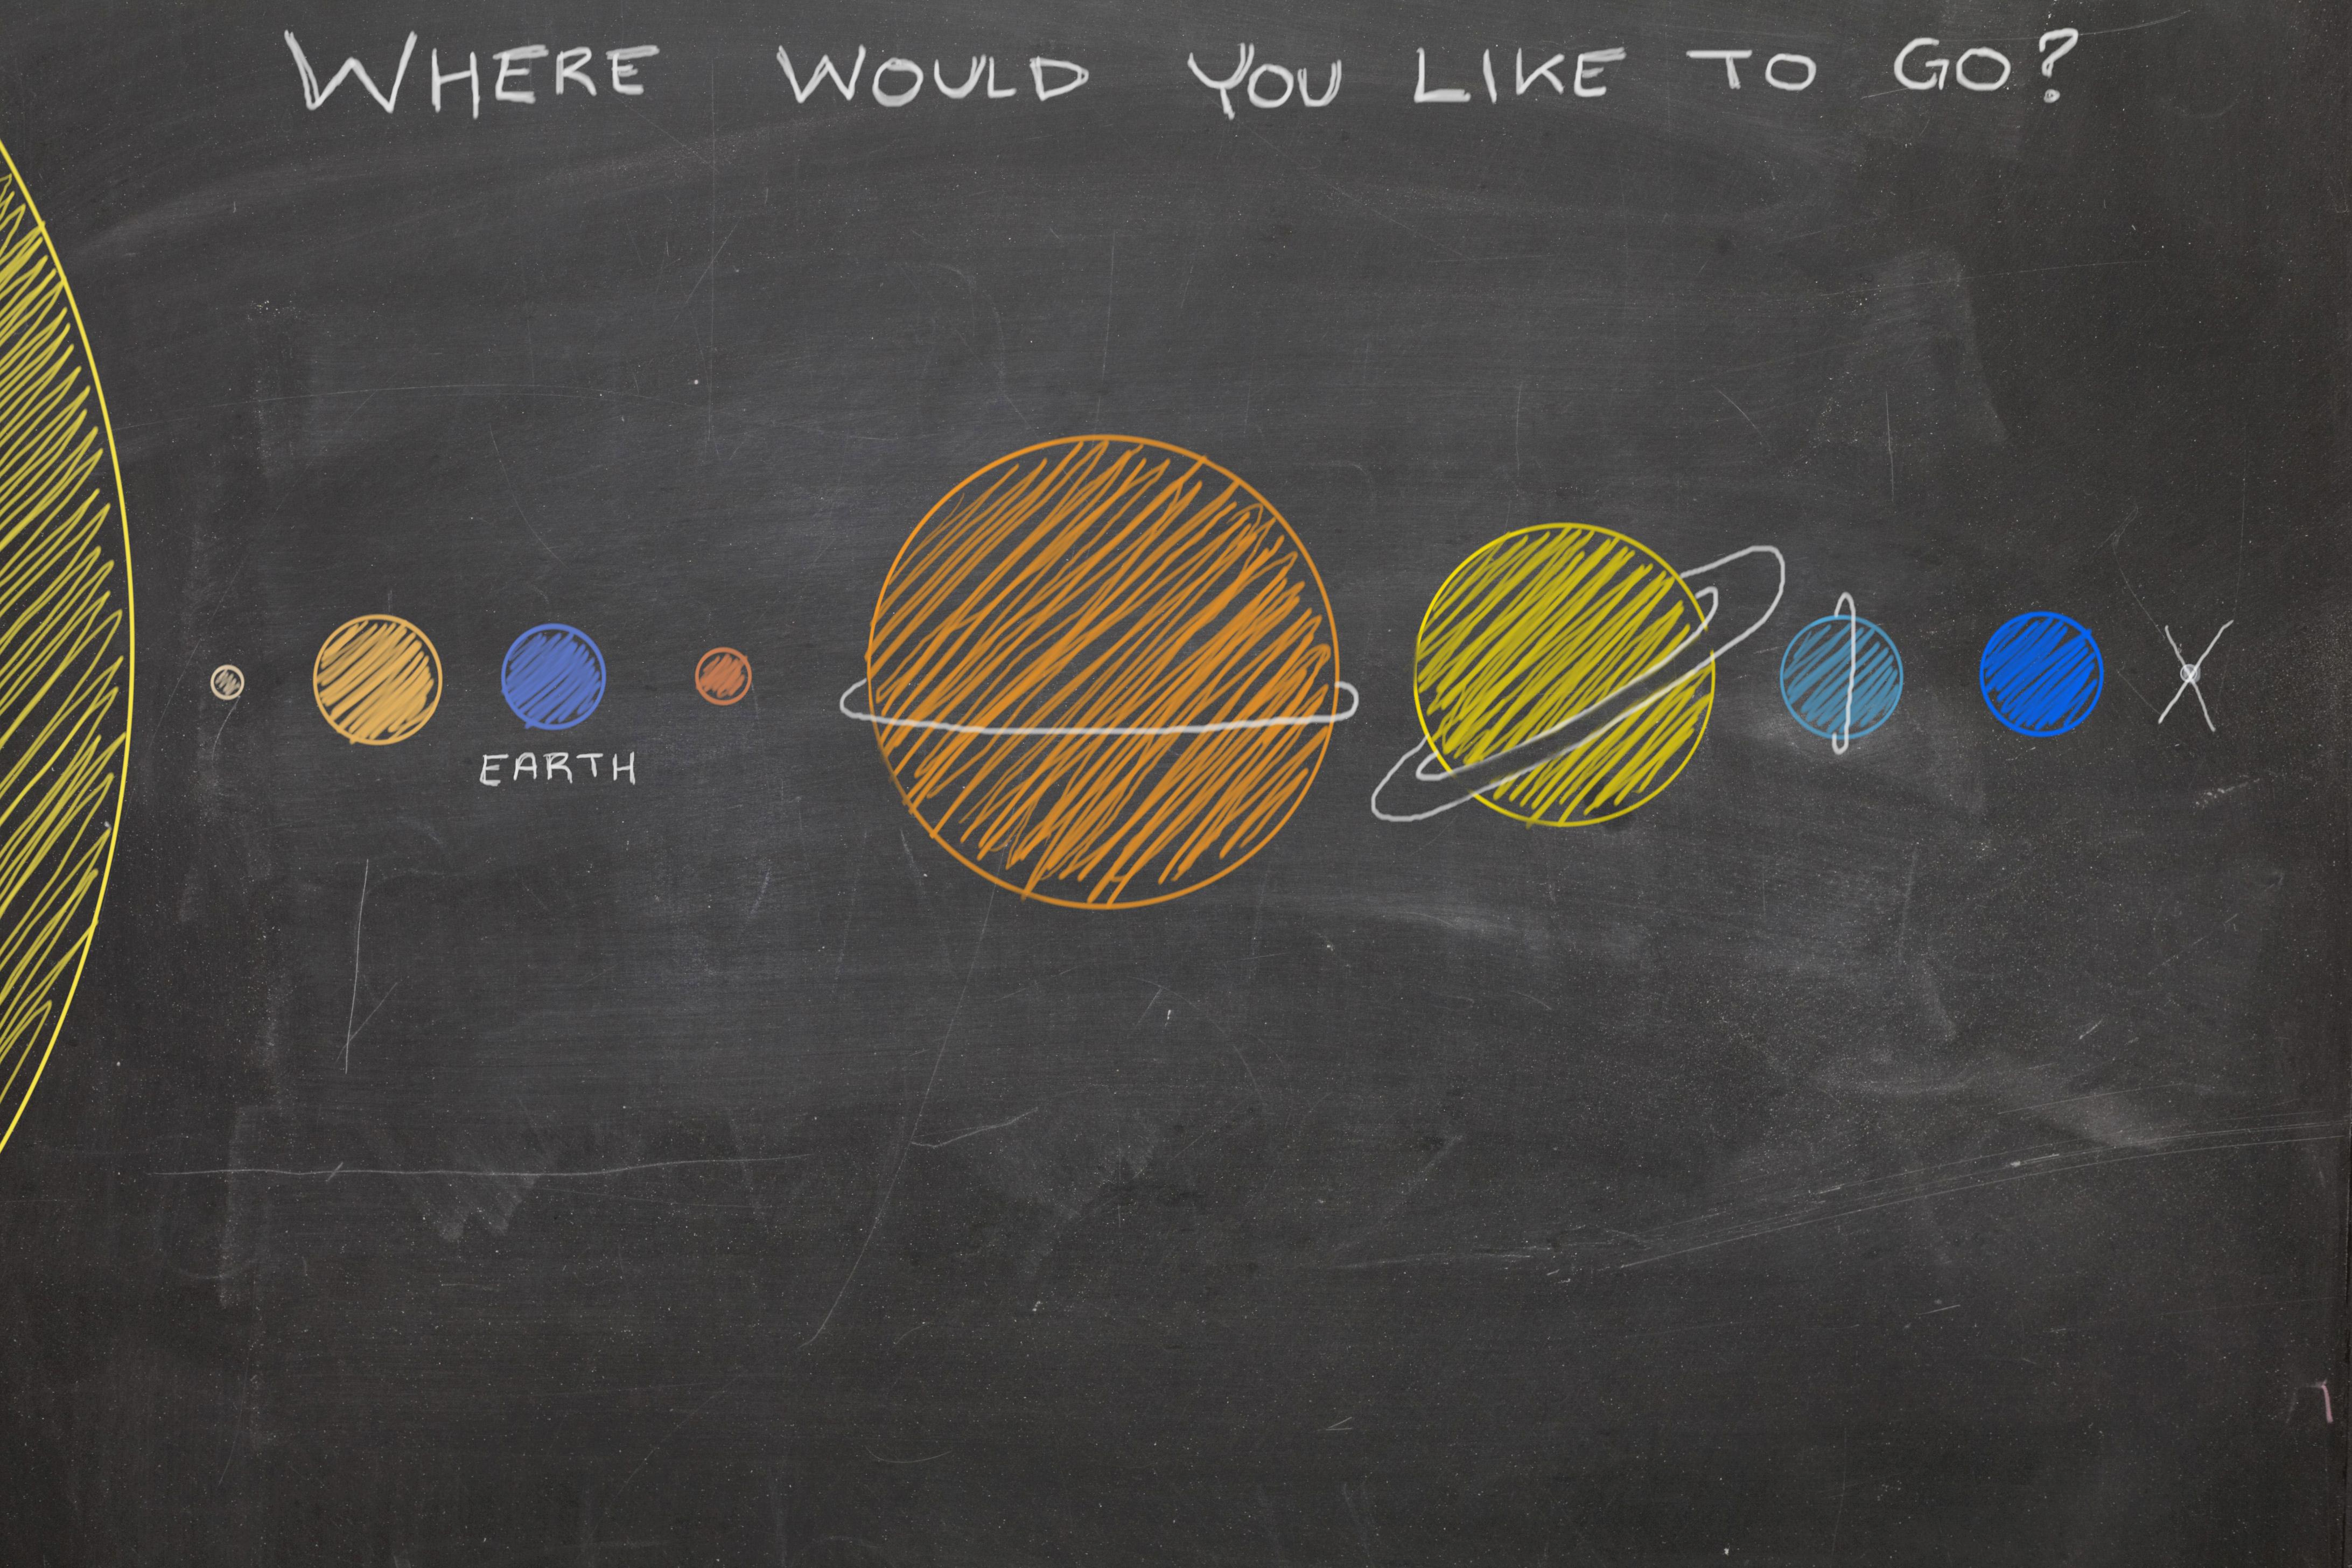 WHERE WOULD YOU LIKE TO GO?
EARTH